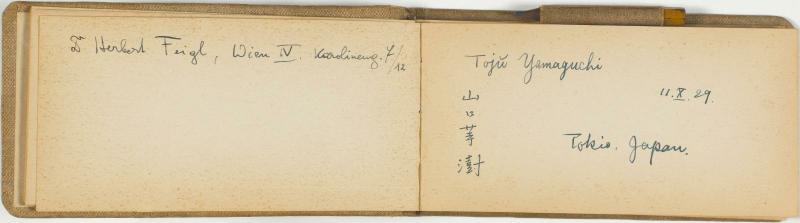 Dr Herbert Feigl, Wien IV. Karolineng. 7/12
Tojū Yamaguchi
11.X.29.
山口等澍
Tokio. Japan.